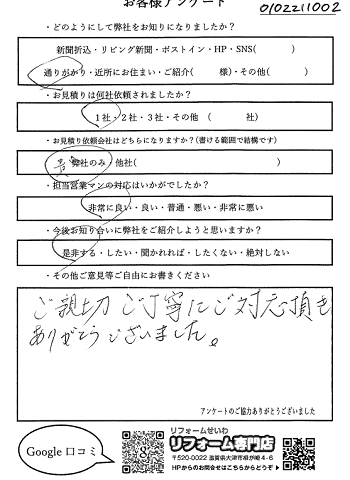 お客様アンケート
0102211002
・どのようにして弊社をお知りになりましたか?
新聞折込・リビング新聞・ポストイン・HP・SNS( )
通りがかり・近所にお住まい・ご紹介( 様)・その他( )
・お見積りは何社依頼されましたか?
1社・2社・3社・その他 ( 社)
・お見積り依頼会社はどちらになりますか?(書ける範囲で結構です)
弊社のみ・他社( )
・担当営業マンの対応はいかがでしたか?
非常に良い・良い・普通・悪い・非常に悪い
・今後お知り合いに弊社をご紹介しようと思いますか?
是非する・したい・聞かれれば・したくない・絶対しない
・その他ご意見等ご自由にお書きください
ご親切 ご丁寧にご対応頂き
ありがとうございました。
アンケートのご協力ありがとうございました
Google 口コミ
リフォームせいわ
リフォーム専門店
〒520-0022 滋賀県大津市柳が崎4-6
HPからのお問合せはこちらからどうぞ